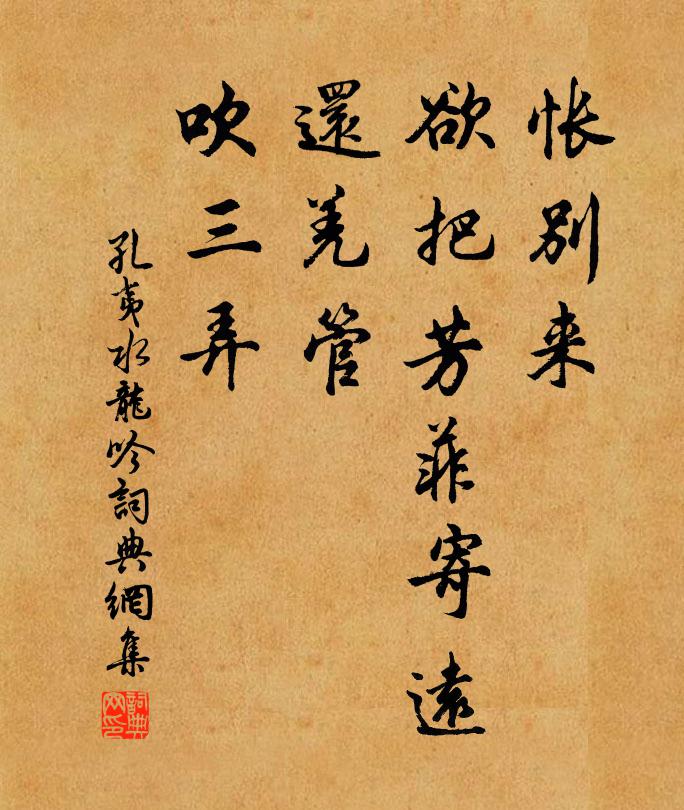 怅别来
欲把芳菲寄远
還羌管
吹三弄
孔夷水龍吟詞典網集
詞典
网印